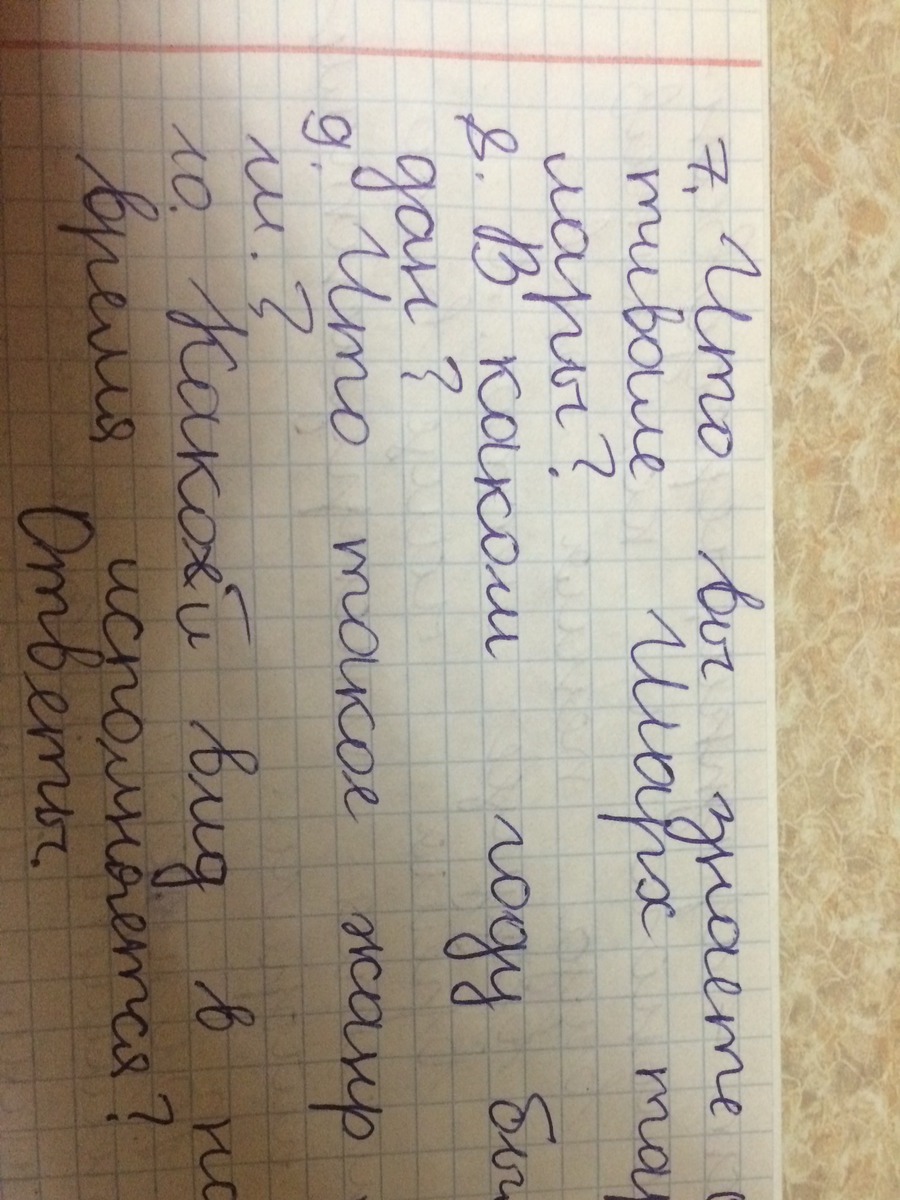 7. Что вы знаете
тивале Шарх
лары?
8. В каком году
дан?
9. Что такое жанр
м.?
10. Какой вид в
время исполняется?
Ответы.